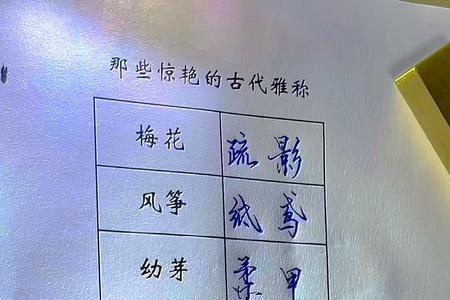 那些惊艳的古代雅称
梅花 疏影
风筝 纸鸢
幼芽 柔甲